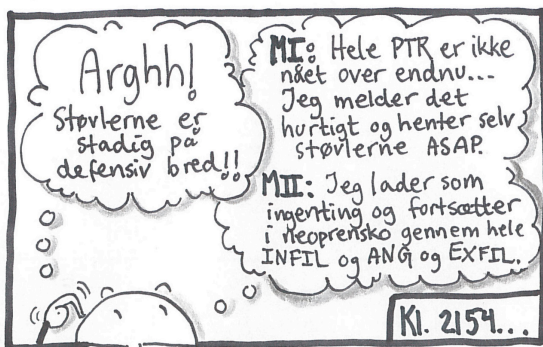 Arghh!
Støvlerne er
stadig på
defensiv bred!!
MI: Hele PTR er ikke
nået over endnu...
Jeg melder det
hurtigt og henter selv
støvlerne ASAP.
MII: Jeg lader som
ingenting og fortsætter
i neoprensko gennem hele
INFIL og ANG og EXFIL.
Kl. 2154...